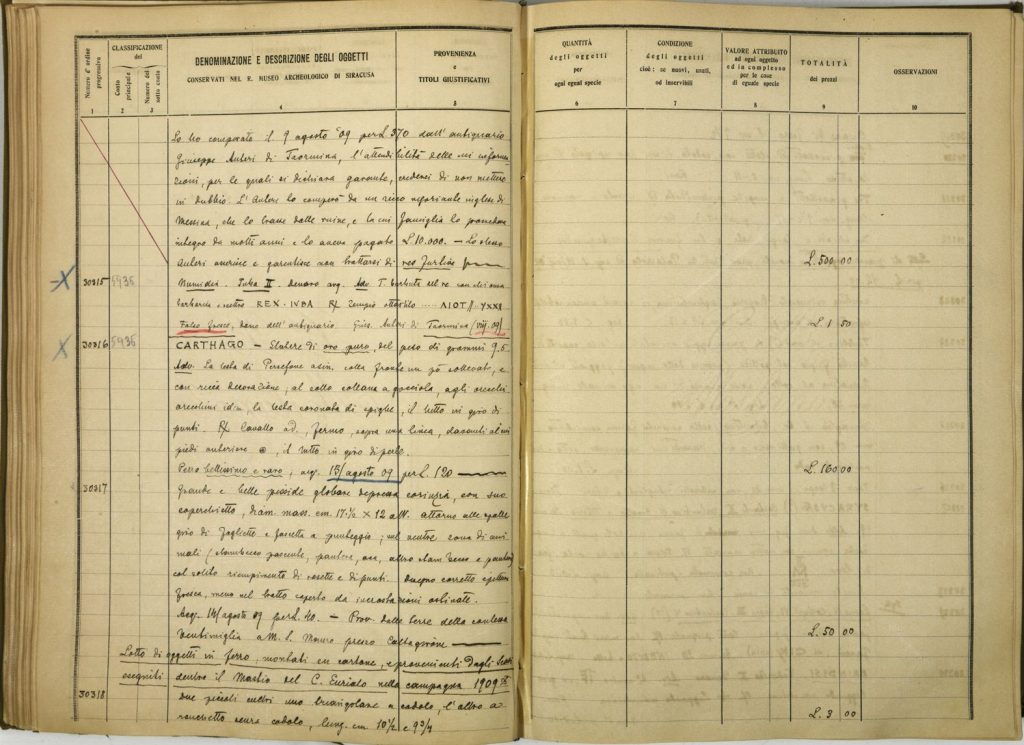 Numero d'ordine progressivo
CLASSIFICAZIONE del
Conto principale
Numero del sotto conto
DENOMINAZIONE E DESCRIZIONE DEGLI OGGETTI
CONSERVATI NEL R. MUSEO ARCHEOLOGICO DI SIRACUSA
PROVENIENZA
e
TITOLI GIUSTIFICATIVI
QUANTITÀ
degli oggetti
per
ogni egual specie
CONDIZIONE
degli oggetti
cioè: se nuovi, usati,
od inservibili
VALORE ATTRIBUITO
ad ogni oggetto
ed in complesso
per le cose
di eguale specie
TOTALITÀ
dei prezzi
OSSERVAZIONI
1 2 3 4 5 6 7 8 9 10
Lo ho comperato il 9 agosto 09 per L. 370 dall'antiquario
Giuseppe Auteri di Taormina, l'attendibilità delle cui informa
zioni, per le quali si dichiara garante, credenci di non mettere
in dubbio. L'Auteri lo comperò da un ricco negoziante inglese di
Messina, che lo trasse dalle ruine, e la cui famiglia lo possedeva
integro da molti anni e lo aveva pagato L. 10.000. — Lo stesso
Auteri asserisce e garantisce non trattarsi di res furtiva L. 500 00
30315 5935 Numidia. Juba II. Denaro arg. Ado. T. barbata del re con
barbarica e scettro REX · IVBA R) Tempio ottastilo
Falso Greco, dono dell'antiquario Gius. Auteri di Taormina (VIII. 09) L. 1 50
30316 5936 CARTHAGO — Statere di oro puro, del peso di grammi 9.5
Ado. La testa di Persefone a sin. colla fronte un pò sollevata, e
con ricca decorazione, al collo collana a gocciola, agli orecchi
orecchini idem, la testa coronata di spighe, il tutto in giro di
punti. R) Cavallo a d., fermo, sopra una linea, davanti al cui
piedi anteriore, il tutto in giro di perle.
Pezzo bellissimo e raro, acq. 13/agosto 09 per L. 120 L. 160 00
30317 Grande e bella pisside globare depressa corinzia, con suo
coperchietto, diam. mass. cm. 17 1/2 × 12 alt. attorno alle spalle
giro di fogliette e fascetta a punteggio; nel ventre zona di ani
mali (stambecco pascente, pantera, oca, altro stambecco e pantera)
col solito riempimento di rosette e di punti. Disegno corretto e pittura
fresca, meno nel tratto coperto da incrostazioni ostinate.
Acq. 14/agosto 09 per L. 40. — Prov. dalle terre della contessa
Ventimiglia a M. S. Mauro presso Caltagirone L. 50 00
Lotto di oggetti in ferro, montati in cartone, e provenienti dagli scavi
eseguiti dentro il Mastio del C. Eurialo nella campagna 1909
30318 due piccoli cultri uno triangolare a codolo, l'altro a
ronchetto senza codolo, lung. cm 10 1/2 e 9 3/4 L. 3 00